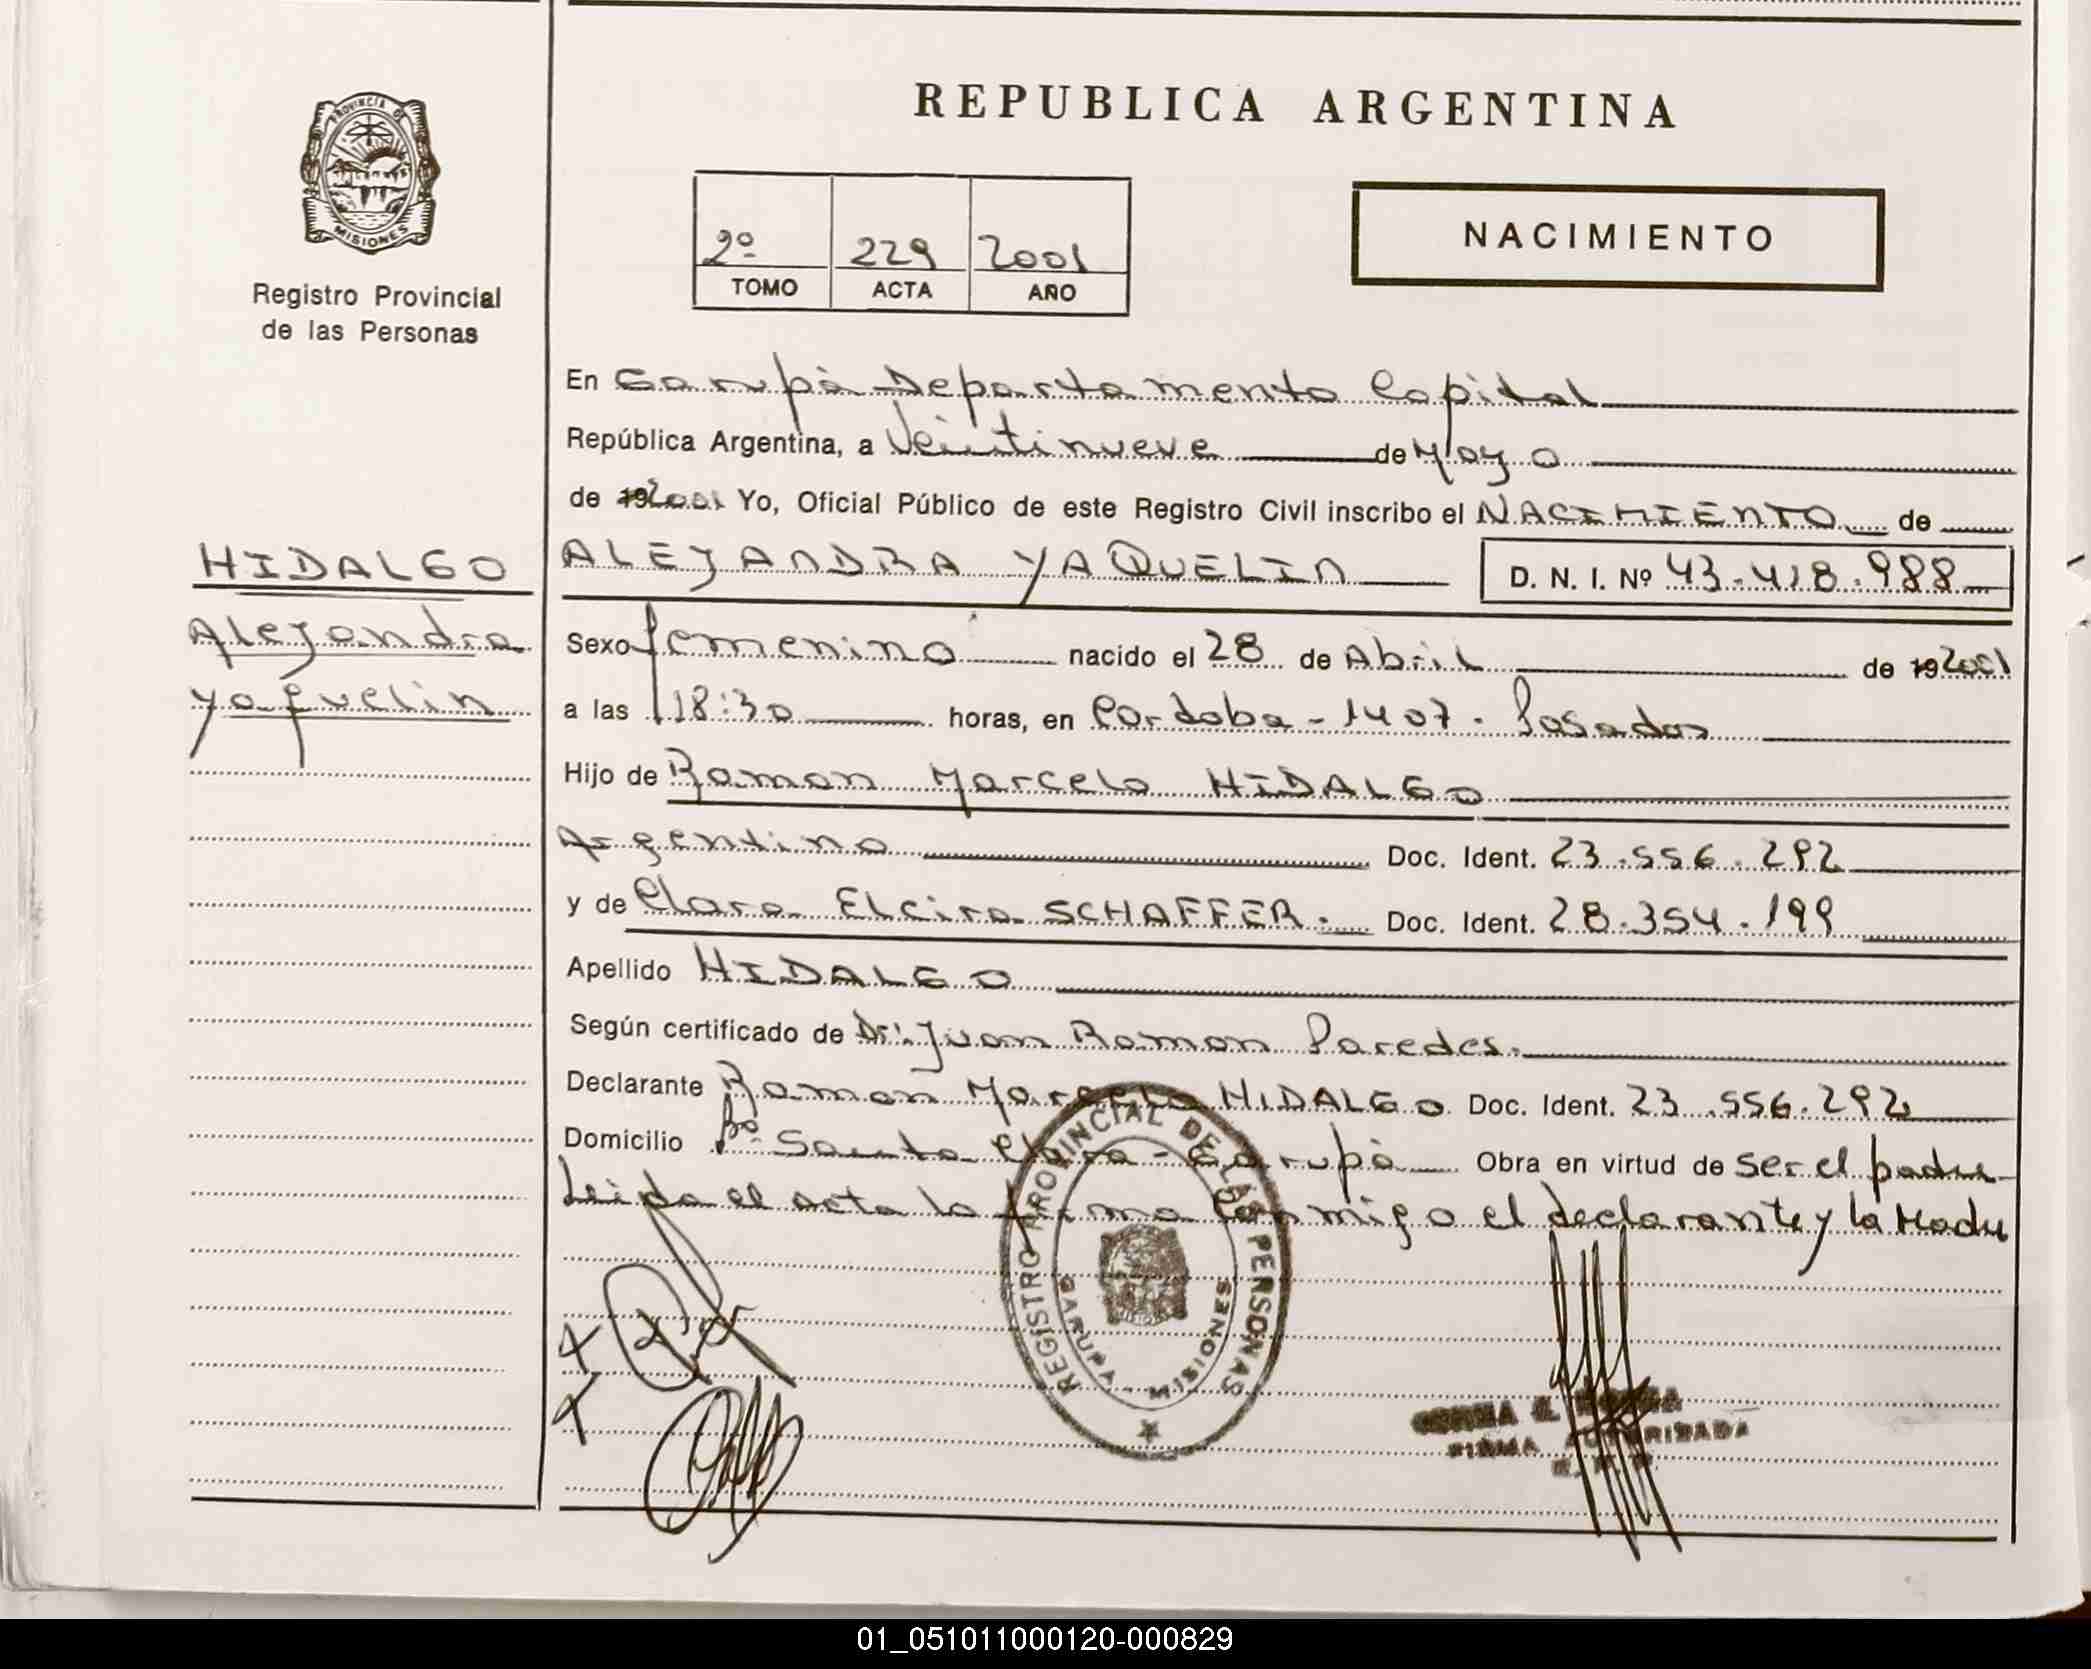 REPUBLICA ARGENTINA
PROVINCIA DE
MISIONES
Registro Provincial
de las Personas
2º 229 2001
TOMO ACTA AÑO
NACIMIENTO
En Garupá Departamento Capital
República Argentina, a Veintinueve de Mayo
de 192001 Yo, Oficial Público de este Registro Civil inscribo el NACIMIENTO de
HIDALGO
Alejandra
yaquelin
ALEJANDRA YAQUELIN D. N. I. Nº 43.418.988
Sexo femenino nacido el 28 de Abril de 192001
a las 18:30 horas, en Cordoba - 1407 - Posadas
Hijo de Ramon Marcelo HIDALGO
Argentino Doc. Ident. 23.556.292
y de Clara Elcira SCHAFFER. Doc. Ident. 28.354.199
Apellido HIDALGO
Según certificado de Dr: Juan Ramon Paredes.
Declarante Ramon Marcelo HIDALGO Doc. Ident. 23.556.292
Domicilio Bº Santa Clara - Garupá Obra en virtud de ser el padre
Leida el acta la firma conmigo el declarante y la Madre
REGISTRO PROVINCIAL DE LAS PERSONAS
GARUPA - MISIONES
FIRMA AUTORIZADA
01_051011000120-000829